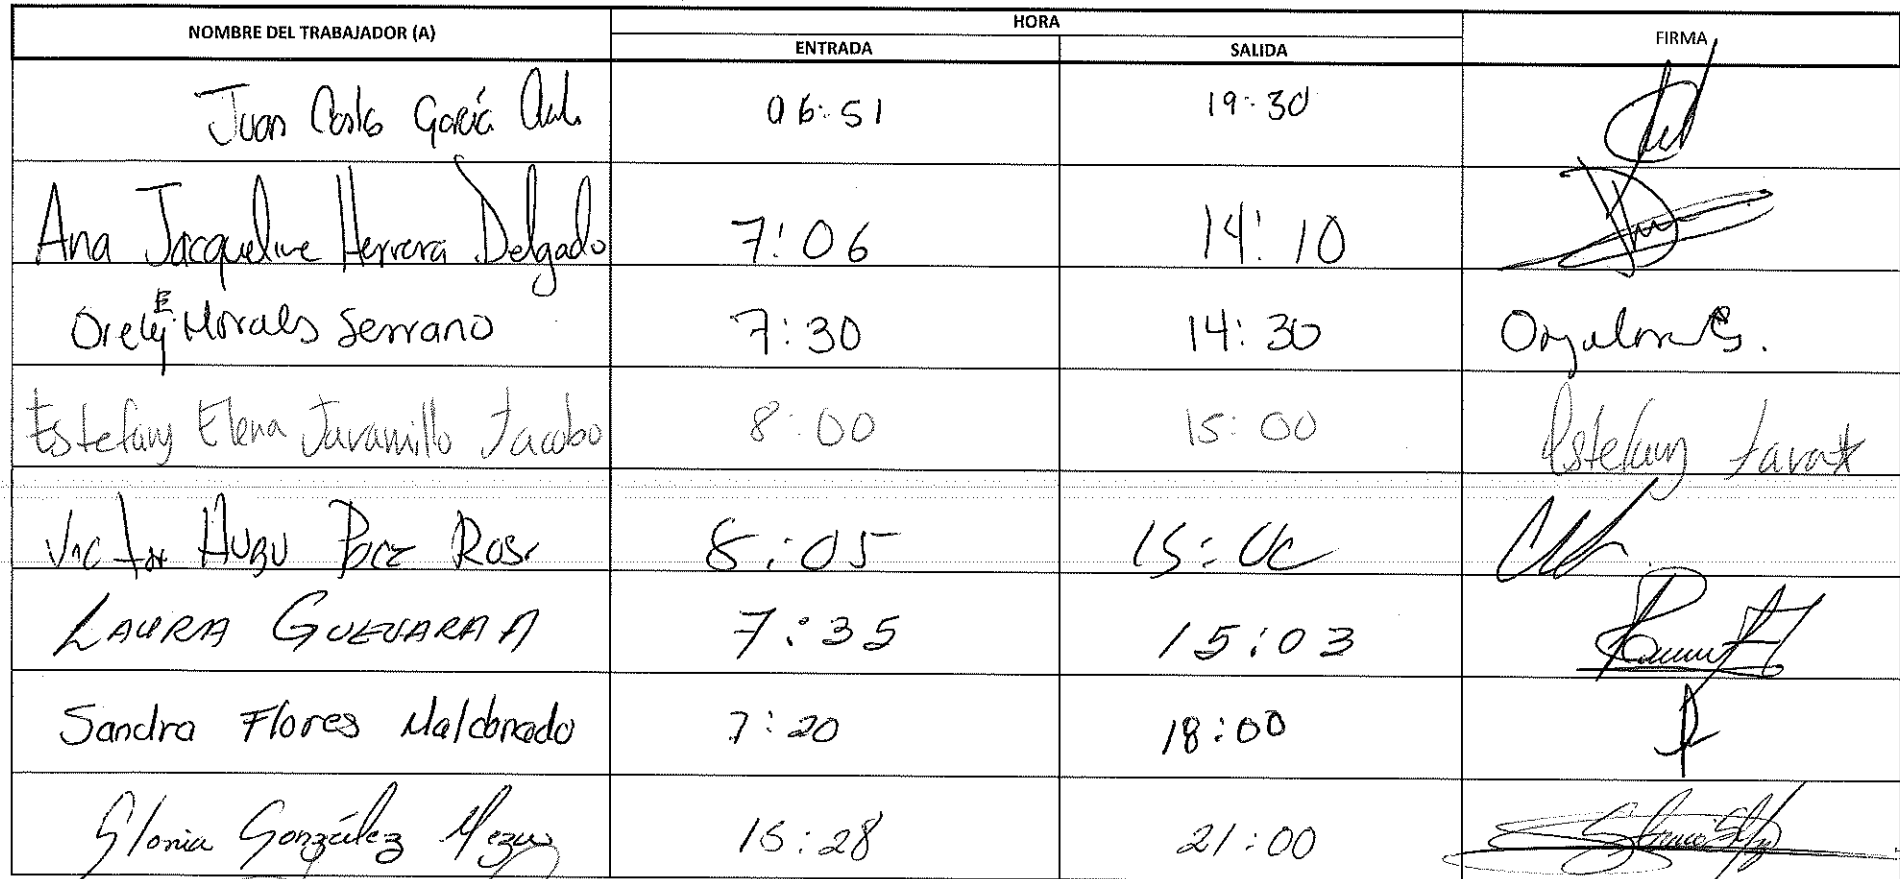 NOMBRE DEL TRABAJADOR (A) HORA FIRMA
ENTRADA SALIDA
Juan Carlos García 06:51 19:30
Ana Jacqueline Herrera Delgado 7:06 14:10
Orely E Morales Serrano 7:30 14:30
Estefany Elena Jaramillo Jacobo 8:00 15:00 Estefany Jara
Victor Hugo 8:05 15:00
LAURA GUEVARA A 7:35 15:03
Sandra Flores Maldonado 7:20 18:00
Gloria González 15:28 21:00